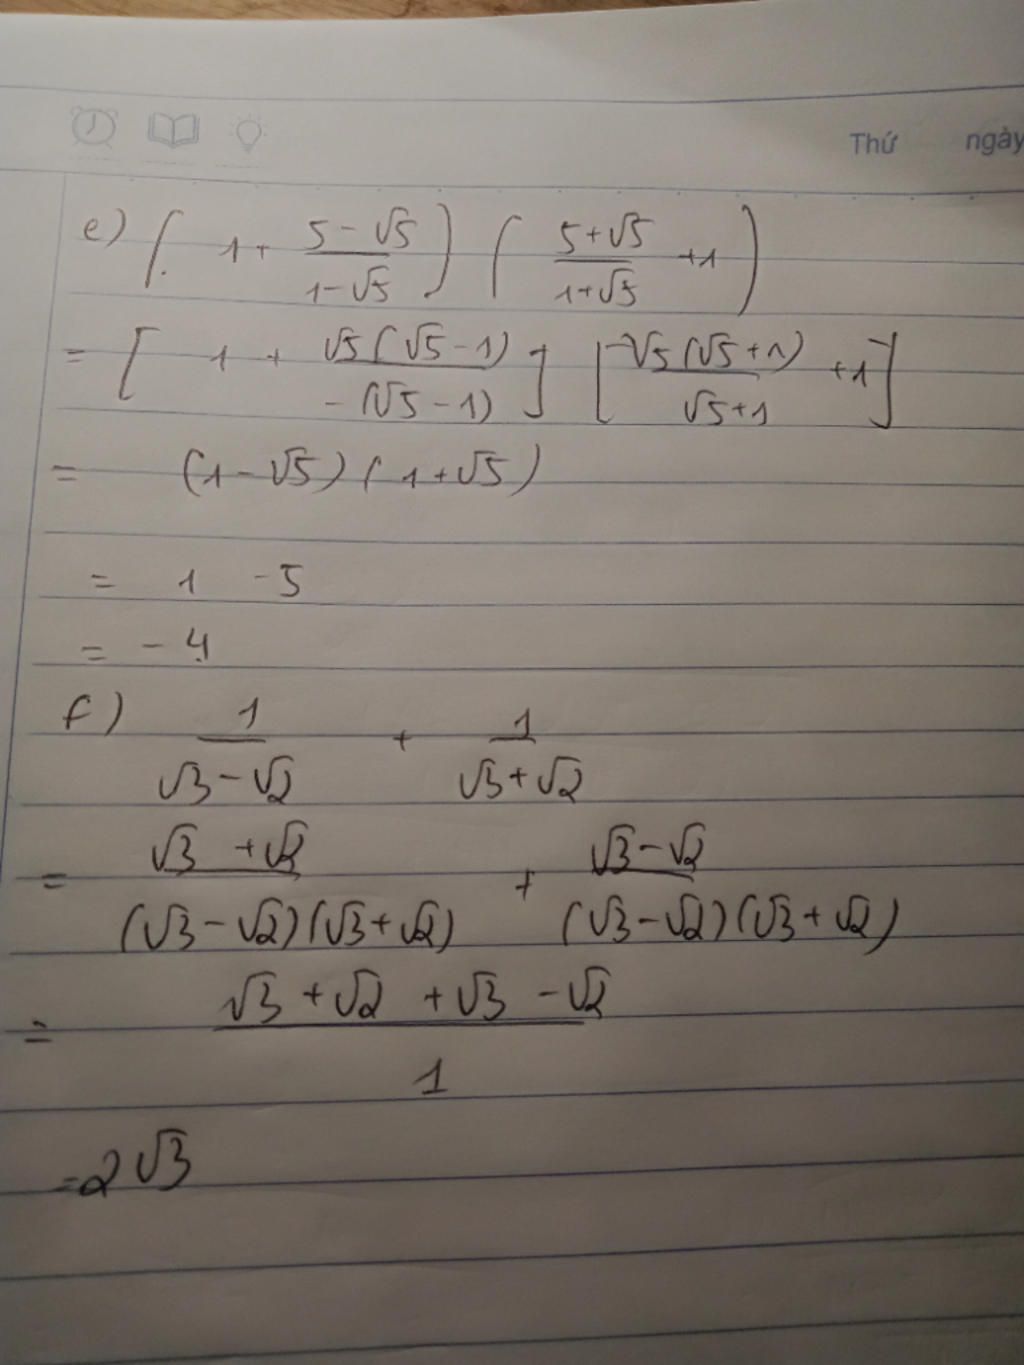 Thứ ngày
e) ( 1 + (5 - √5)/(1 - √5) ) ( (5 + √5)/(1 + √5) + 1 )
= [ 1 + √5(√5 - 1)/-(√5 - 1) ] [ √5(√5 + 1)/(√5 + 1) + 1 ]
= (1 - √5)(1 + √5)
= 1 - 5
= - 4
f) 1/(√3 - √2) + 1/(√3 + √2)
= (√3 + √2)/((√3 - √2)(√3 + √2)) + (√3 - √2)/((√3 - √2)(√3 + √2))
= (√3 + √2 + √3 - √2)/1
= 2√3